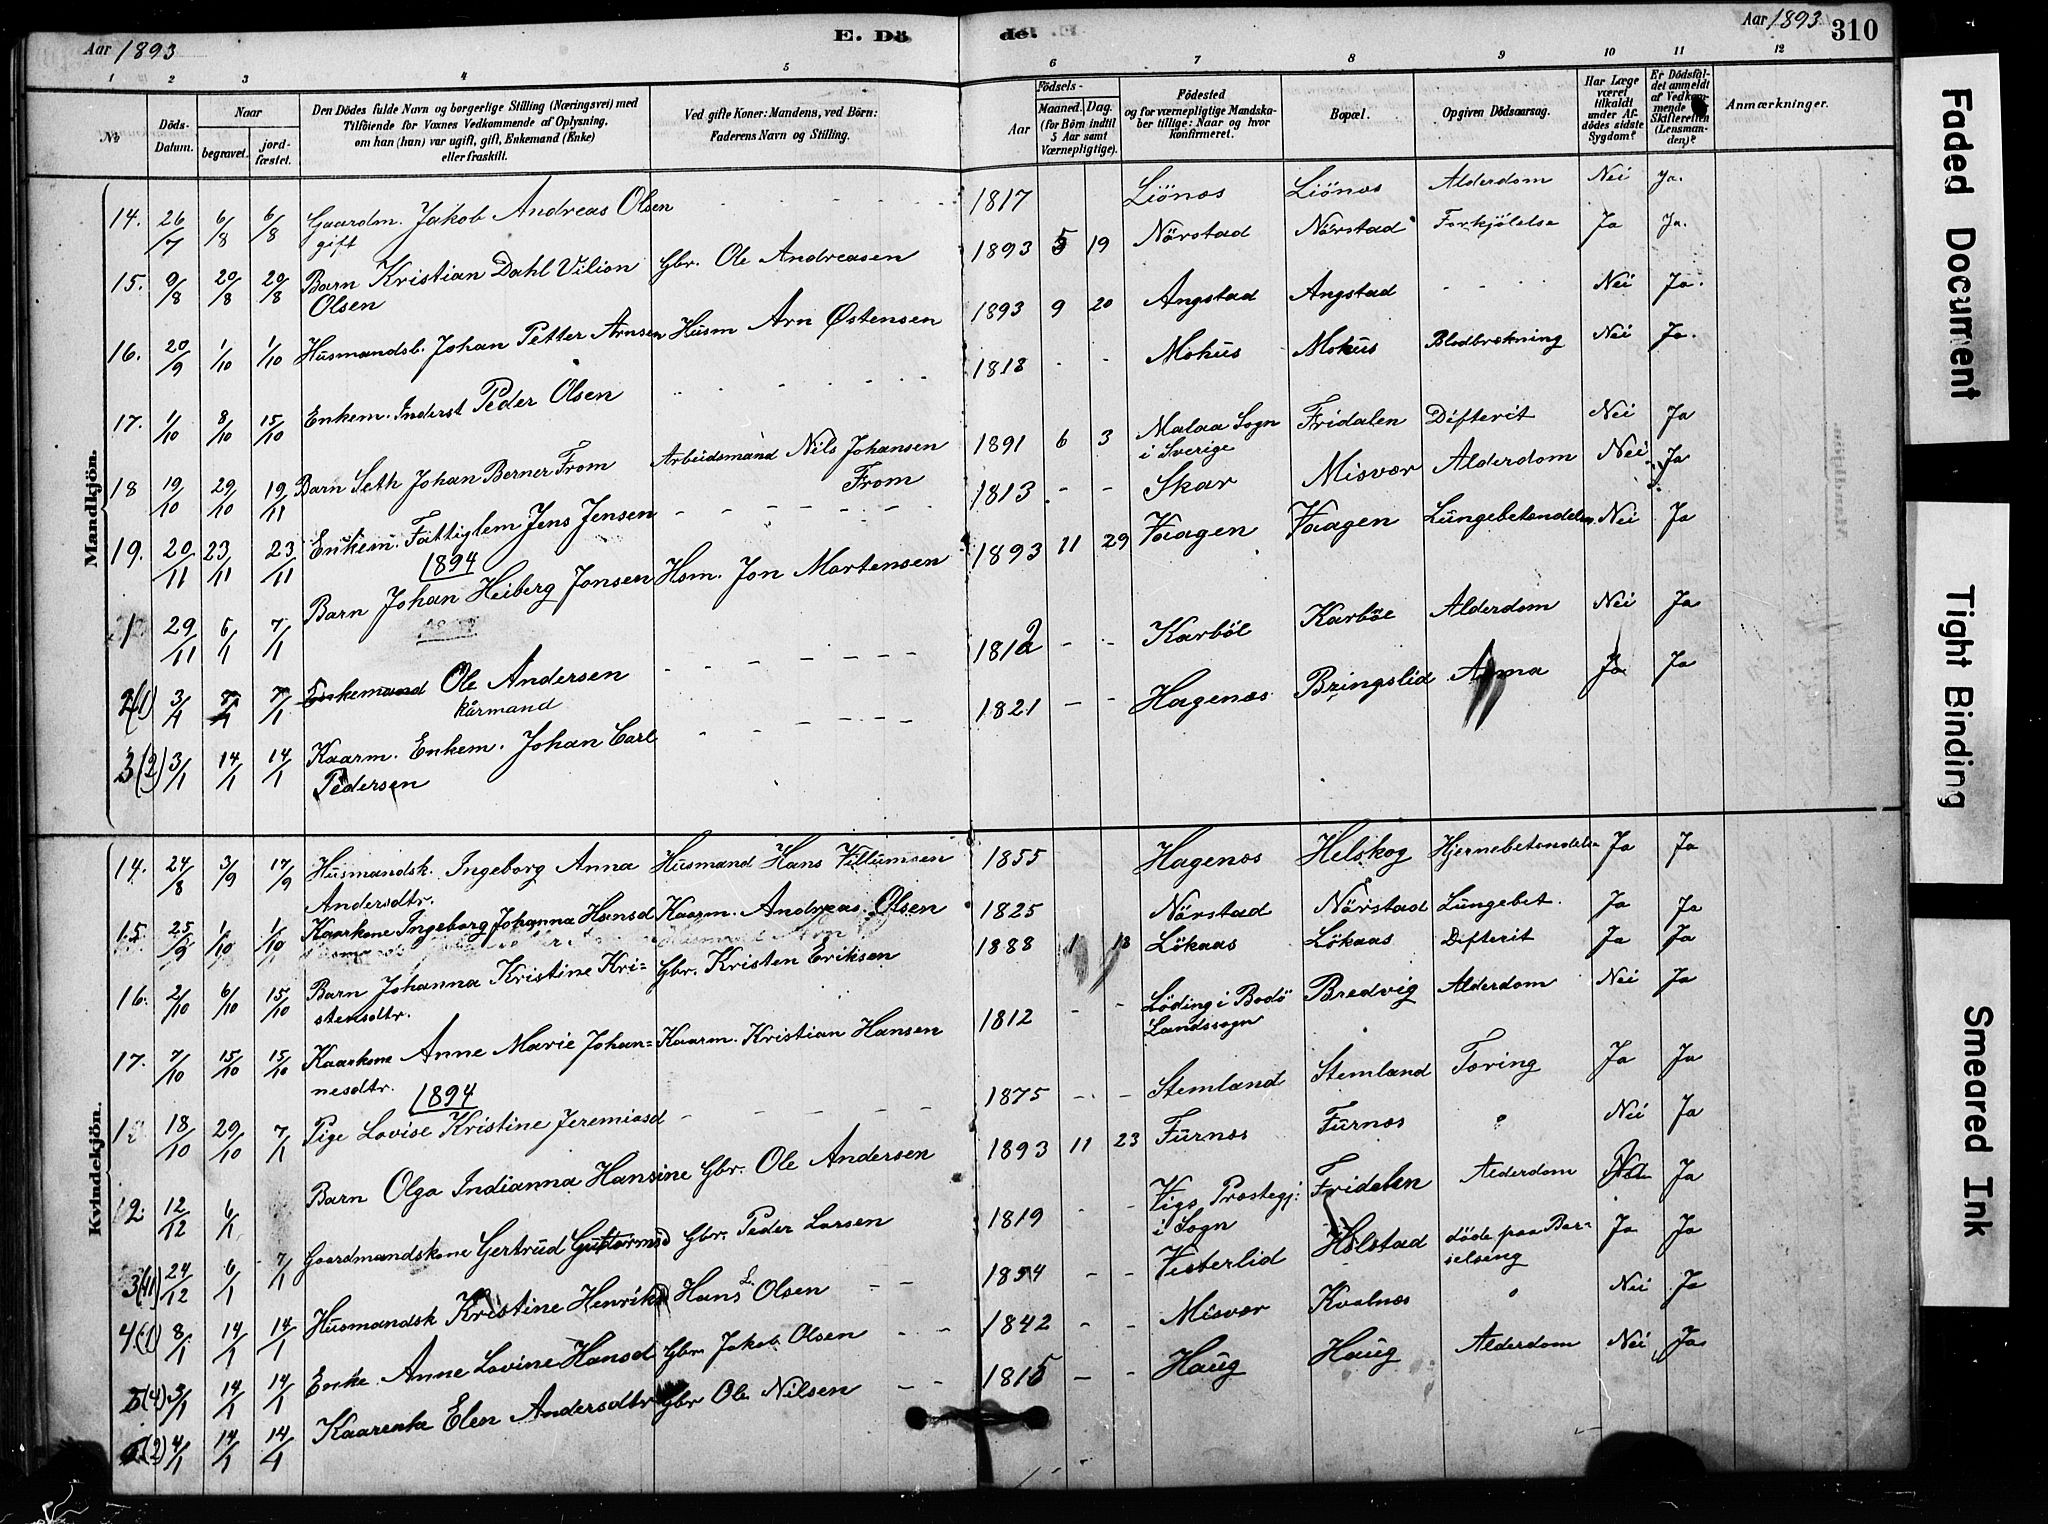 Aar 1893
E. Dö
de.
Aar 1893
310
1 2 3 4 5 6 7 8 9 10 11 12
No
Döds-Datum.
Naar
begravet. jord-fæstet.
Den Dödes fulde Navn og borgerlige Stilling (Næringsvei) med
Tilföiende for Voxnes Vedkommende af Oplysning,
om han (hun) var ugift, gift, Enkemand (Enke)
eller fraskilt.
Ved gifte Koner: Mandens, ved Börn:
Faderens Navn og Stilling.
Födsels-
Aar Maaned. Dag.
(for Börn indtil
5 Aar samt
Værnepligtige).
Födested
og for værnepligtige Mandska-
ber tillige: Naar og hvor
konfirmeret.
Bopæl.
Opgiven Dödsaarsag.
Har Læge
været
tilkaldt
under Af-
dödes sidste
Sygdom?
Er Dödsfal-
det anmeldt
af Vedkom-
mende til
Skifteretten
(Lensman-
den)?
Anmærkninger.
Mandkjön.
14. 26/7 6/8 6/8 Gaardm. Jakob Andreas Olsen 1817 Liönæs Liönæs Alderdom Nei Ja.
gift
15. 9/8 20/8 20/8 Barn Kristian Dahl Vilion Gbr. Ole Andreasen 1893 5 19 Nörstad Nörstad Forkjölelse Ja Ja.
Olsen
16. 20/9 1/10 1/10 Husmandsb. Johan Petter Arnsen Husm Arn Østensen 1893 9 20 Angstad Angstad Nei Ja.
17. 1/10 8/10 15/10 Enkem. Inderst Peder Olsen 1818 - - Mohus Mohus Blodbrækning Nei Ja.
18 19/10 29/10 19/11 Barn Seth Johan Berner From Arbeidsmand Nils Johansen 1891 6 3 Malaa Sogn Fridalen Difterit Nei Ja
From i Sverige
19. 20/11 23/11 23/11 Enkem. Fattiglem Jens Jensen 1813 - - Skar Misvær Alderdom Nei Ja
1894
1 29/11 6/1 7/1 Barn Johan Heiberg Jonsen Hsm. Jon Mortensen 1893 11 29 Vaagen Vaagen Lungebetændelse Nei Ja
2(1) 3/1 7/1 7/1 Enkemand Ole Andersen 1812 - - Karböl Karböl Alderdom Nei Ja
kårmand
3(2) 3/1 14/1 14/1 Kaarm. Enkem. Johan Carl 1821 - - Hagenæs Bringslid Ja Ja
Pedersen
Kvindekjön.
14. 24/8 3/9 17/9 Husmandsk. Ingeborg Anna Husmand Hans Villumsen 1855 Hagenæs Helskog Hjernebetændelse Ja Ja
Andersdtr.
15. 25/9 1/10 1/10 Kaarkone Ingeborg Johanna Hansd Kaarm. Andreas Olsen 1825 Nörstad Nörstad Lungebet. Ja Ja
16. 2/10 6/10 15/10 Barn Johanna Kristine Kri= Gbr. Kristen Eriksen 1888 1 18 Lökaas Lökaas Difterit Ja Ja
stensdtr.
17. 7/10 15/10 15/10 Kaarkone Anne Marie Johan= Kaarm. Kristian Hansen 1812 - - Löding i Bodö Bredvig Alderdom Nei Ja
nesdtr. Landssogn
1894
18 18/10 29/10 7/1 Pige Lovise Kristine Jeremiasd 1875 - - Stemland Stemland Tæring Ja Ja
12. 12/12 6/1 Barn Olga Indianna Hansine Gbr. Ole Andersen 1893 11 23 Furnæs Furnæs Nei Ja
3(11) 24/12 6/1 7/1 Gaardmandskone Gertrud Guttormsd Gbr. Peder Larsen 1819 - - Vigs Prostegj: Fridalen Alderdom Ja
i Sogn
4(1) 8/1 14/1 14/1 Husmandsk Kristine Henriksd Hans L. Olsen 1854 - - Vesterlid Holstad döde paa Bar= Ja Ja
selseng
5(4) 3/1 14/1 14/1 Enke Anne Lovine Hansd Gbr. Jakob Olsen 1842 - - Misvær Kvalnæs Nei Ja
6(2) 4/1 14/1 14/1 Kaarenke Elen Andersdtr Gbr Ole Nilsen 1815 - - Haug Haug Alderdom Nei Ja
Faded Document
Tight Binding
Smeared Ink